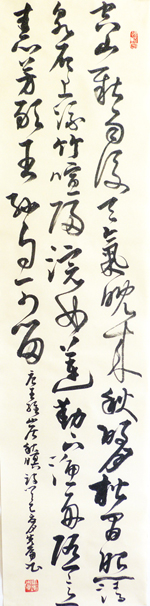 空山新雨後天氣晚來秋明月松間照清
泉石上流竹喧歸浣女蓮動下漁舟隨意
春芳歇王孫自可留
唐王維山居秋暝詩